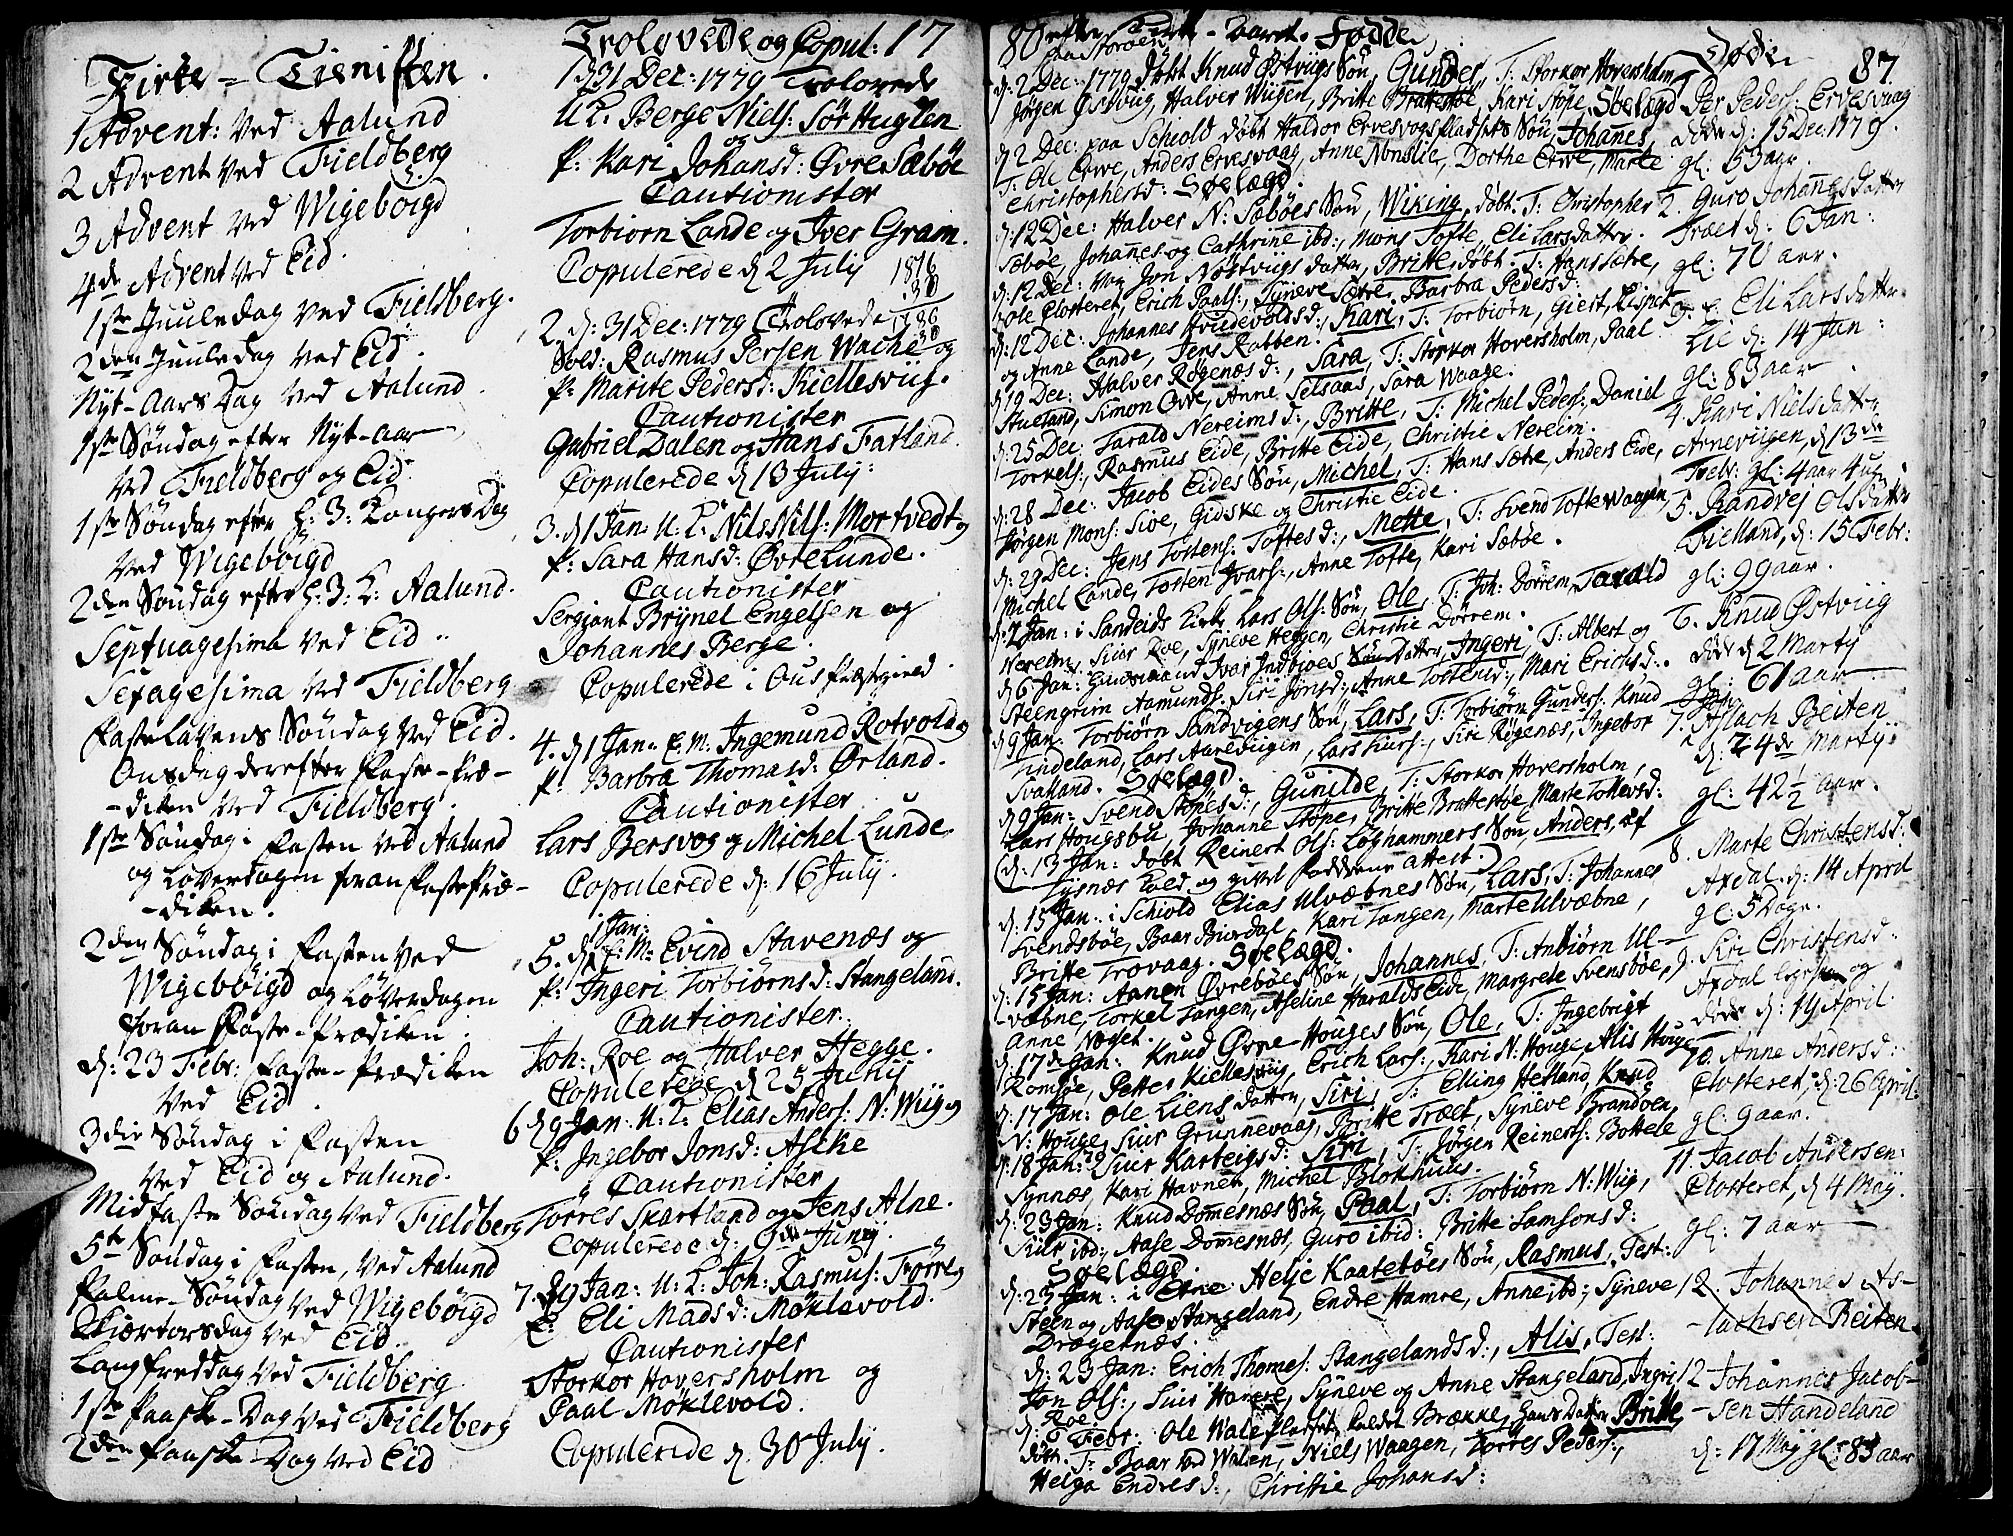 Kirke-Tienisten.
1 Advent: Ved Aalund
2 Advent Ved Fieldberg
3 Advent ved Wigeboigd
4de Advent ved Eid.
1ste Juuledag ved Fieldberg.
2den Juuledag ved Eid.
Nyt-Aars Dag ved Aalund
1ste Søndag efter Nyt-aar
ved Fieldberg og Eid
1ste Søndag efter H: 3: Kongers Dag
ved Wigeboigd
2den Søndag efter H: 3: K: Aalund.
Septuagesima ved Eid
Sexagesima ved Fieldberg
Fastelavens Søndag ved Eid.
Onsdag derefter Faste-Præ-
-diken ved Fieldberg.
1ste Søndag i Fasten ved Aalund
og Løverdagen foran Fastepræ-
-diken.
2den Søndag i Fasten ved
Wigeboigd og Løverdagen
foran Faste-Prædiken.
d: 23 Febr: Faste-Prædiken
ved Eid.
3die Søndag i Fasten
ved Eid og Aalund.
Midfaste Søndag ved Fieldberg
5te Søndag i Fasten, ved Aalund
Palme-Søndag ved Wigebøigd
Skiærtorsdag ved Eid
Langfreddag ved Fieldberg
1ste Paaske-Dag ved Fieldberg
2den Paaske-Dag ved Eid
Trolovede og Copul: 17
1 d 31 Dec: 1779 Trolovede
U.K. Berge Niels: Sør Huglen
og
P: Kari Johansd: Øvre Sæbøe
Cautionister
Torbiørn Lande og Iver Gram.
Copulerede d 2 July
2. d: 31 Dec: 1779 Trolovede
Sold: Rasmus Persen Wache og
P: Marite Pedersd: Kiellesviig.
Cautionister
Gabriel Dalen og Hans Fatland.
Copulerede d 13 July:
3. d 1 Jan: U.K. Nils Nils: Mortvedt og
P: Sara Hansd: Øvre Lunde.
Cautionister
Sergiant Brynel Engelsen og
Johannes Berge.
Copulerede i Ous Præstegield.
4. d 1 Jan: E.M. Ingemund Rotvold og
P: Barbra Thomasd: Ørland.
Cautionister
Lars Bersvog og Michel Lunde
Copulerede d: 16 July.
1 Jan:
5. d E: M: Evind Stavenæs og
P: Ingeri Torbiørnsd: Stangeland.
Cautionister:
Joh: Roe og Halver Hegge.
Copulerede d 25 Junij
6 d 9 Jan: U: K: Elias Anders: N: Wiig og
P: Ingebor Jonsd: Aske
Cautionister
Torres Skartland og Jens Alne.
Copulerede d: 9de Junij.
7. d 9 Jan: U: K: Joh: Rasmus: Tørre og
E: Eli Madsd: Møklevold.
Cautionister
Storkor Hoversholm og
Paal Møklevold.
Copulerede d. 30 July.
80 efter Kirke-Aaret. Fødde
paa Storøen
d: 2 Dec: 1779 døbt Knud Østviigs Søn, Gunder, T: Storkor Hoversholm,
Jørgen Østviig, Halver Wiigen, Britte Brattestøe, Kari Støpe, Søelægd
d 2 Dec: paa Schiold døbt Haldor Ervesvogs pladsets Søn, Johanes,
T: Ole Erve, Anders Ervesvaag, Anne Nonslie, Dorthe Erve, Marte
Christophersd: Søelægd.
d: 12 Dec: Halver N: Sæbøes Søn, Wiking, døbt. T: Christopher
Sæbøe, Johannes og Cathrine ibd:, Mons Tofte, Eli Larsdatter.
d: 12 Dec: Jon Nøstviigs datter, Britte, døbt. T: Hans Sætre,
Ole Closteret, Erich Paals:, Syneve Sætre, Barbra Pedersd:
d: 12 Dec: Johannes Hvidevoldsd:, Kari, T: Torbiørn, Giert,
og Anne Lande, Jens Rabben.
d 19 Dec: Halver Røgenæsd:, Sara, T: Storkor Hoversholm, Paal
Stueland, Simon Erve, Anne Selsaas, Sara Waage.
d: 25 Dec: Tarald Nereimsd:, Britte, T: Michel Peders:, Daniel
Torkels:, Rasmus Eide, Britte Eide, Christie Nereim.
d: 28 Dec: Jacob Eides Søn, Michel, T: Hans Sætre, Anders Eide,
Jørgen Mons: Sioe, Gidske og Christie Eide.
d: 29 Dec: Jens Tostens: Toftes d:, Mette, T: Svend Tofte Waagen,
Michel Lande, Tosten Ivars:, Anne Tofte, Kari Sæbøe.
d: 2 Jan: i Sandeids Kirke Lars Ols: Søn, Ole, T: Joh: Dørrem, Tarald
Nereim, Siur Roe, Syneve Heggen, Christie Dørrem.
d 6 Jan: Huusmand Ivar Indbioes Datter, Ingeri, T: Albert og
Steengrim Aamunds: Siri Jonsd:, Anne Tostensd:, Mari Erichsd:
d 9 Jan: Torbiørn Sandvigens Søn, Lars, T: Torbiørn Gunders: Knud
Tindeland, Lars Aareviigen, Lars Siurs:, Siri Røgenæs, Ingebor
Svatland. Søelægd.
d 9 Jan: Svend Støpes d:, Gunilde, T: Storkor Hoversholm,
Lars Hougsbøe, Johanne Støpe, Britte Brattestøe, Marte Tollevsd:
(d: 13 Jan: døbt Reinert Ols: Løghammers Søn, Anders, af
Tysnæs Sold. og givet Fadderne attest.)
d: 15 Jan: i Schiold Elias Ulvæbnes Søn, Lars, T: Johannes
Svendsbøe, Baar Biordal, Kari Tangen, Marte Ulvæbne,
Britte Trovaag. Søelægd.
d: 15 Jan: Aanen Øvrebøes Søn, Johannes, T: Anbiørn Ul-
-væbne, Torkel Tangen, Aseline Haralds Eide, Margrete Svensbøe,
Anne Næget.
d: 17de Jan: Knud Øvre-Houges Søn, Ole, T: Ingebrigt
Romsøe, Petter Kiellesviig, Erich Lars:, Kari N: Houge, Alis Houge
d: 17 Jan: Ole Liens datter, Siri, T: Elling Hetland, Knud
N: Houge, Siur Grunnevaag, Britte Træet, Syneve Brandøen,
d: 18 Jan: Siur Karteigs d: Siri, T: Jørgen Reinerts: Bottele
Synnæs, Kari Havnen, Michel Blokhuus.
d: 23 Jan: Knud Domesnæs Søn, Paal, T: Torbiørn N: Wiig,
Siur ibd:, Aase Domesnæs, Guro ibid: Britte Samsonsd:
Søelægd.
d: 23 Jan: i Etne Helje Kaatebøes Søn, Rasmus, Test:
Steen og Aase Stangeland, Endre Hamre, Anne ibd:, Syneve
Drægenæs.
d: 23 Jan: Erich Thomes: Stangelandsd:, Alis, Test:
Jon Ols:, Siur Hamre, Syneve og Anne Stangeland, Ingri
Roe.
d: 6 Febr: Ole Wale pladset kaldet Brække, Hans Datter Britte
døbt. T: Baar ved Walen, Niels Waagen, Torres Peders:,
Helga Endresd:, Christie Johansd:
Døde 87
1 Per Peders: Ervesvaag
døde d: 15 Dec: 1779.
gl: 53 aar.
2. Guro Johannesdatter
Træet d: 6 Jan:
gl: 70 aar.
3. Eli Larsdatter
Lie d: 14 Jan:
gl: 83 aar
4. Kari Nielsdatter
Arneviigen, d 13de
Febr: gl: 4 aar 4 ug:
5. Randvej Olsdatter
Fielland, d: 15 Febr:
gl: 99 aar.
6. Knud Østviig
døde d 2 Martij
gl: 61 aar
7. Aslach Beiten
d: 24de Martij.
gl: 42 1/2 aar.
8. Marte Christensd:
Axdal d: 14 April
gl: 5 Dage.
9. Siri Christensd:
Axdal og
døde d: 19 April
10. Anne Andersd:
Closteret, d: 26 April.
gl: 9 aar.
11. Jacob Andersen:
Closteret, d 4 May.
gl: 7 aar
12. Johannes As-
-lachsen Beiten.
12 Johannes Jacob-
-sen Handeland
d: 17 Maij gl: 83 aar